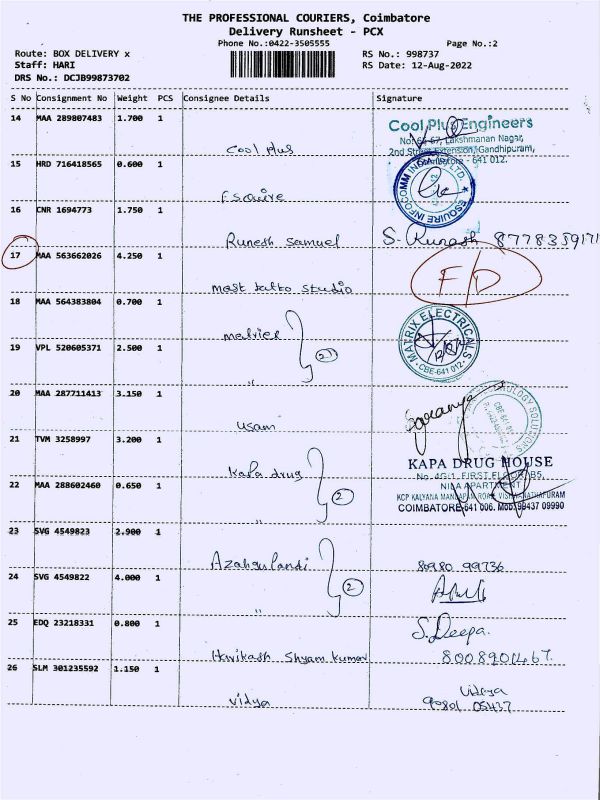 THE PROFESSIONAL COURIERS, Coimbatore
Delivery Runsheet - PCX
Phone No.:0422-3505555
Page No.:2
Route: BOX DELIVERY x
RS No.: 998737
Staff: HARI
RS Date: 12-Aug-2022
DRS No.: DCJB99873702
S No Consignment No Weight PCS Consignee Details Signature
14 MAA 289807483 1.700 1
Cool Plus
Cool Plus Engineers
Lakshmanan Nagar,
2nd Street Extension, Gandhipuram,
Coimbatore - 641 012.
15 HRD 716418565 0.600 1
Esquire
ESQUIRE INFOCOMM INDIA (P) LTD.
16 CNR 1694773 1.750 1
Runesh Samuel
S. Runesh 8778359171
17 MAA 563662026 4.250 1
studio
F/D
18 MAA 564383804 0.700 1
MATRIX ELECTRICALS
CBE-641 012
19 VPL 520605371 2.500 1
(2)
"
20 MAA 287711413 3.150 1
usam
Saranya
SOLUTIONS
21 TVM 3258997 3.200 1
Kapa drug
KAPA DRUG HOUSE
FIRST FLOOR, B5,
NILA APARTMENT
KCP KALYANA MANDAPAM ROAD, VISHWANATHAPURAM
COIMBATORE-641 006. Mob: 99437 09990
22 MAA 288602460 0.650 1
(2)
"
23 SVG 4549823 2.900 1
80980 99736
24 SVG 4549822 4.000 1
(2)
"
25 EDQ 23218331 0.800 1
Harikash Shyam kumar
S. Deepa.
8008901467.
26 SLM 301235592 1.150 1
vidya
Vidaya
05437